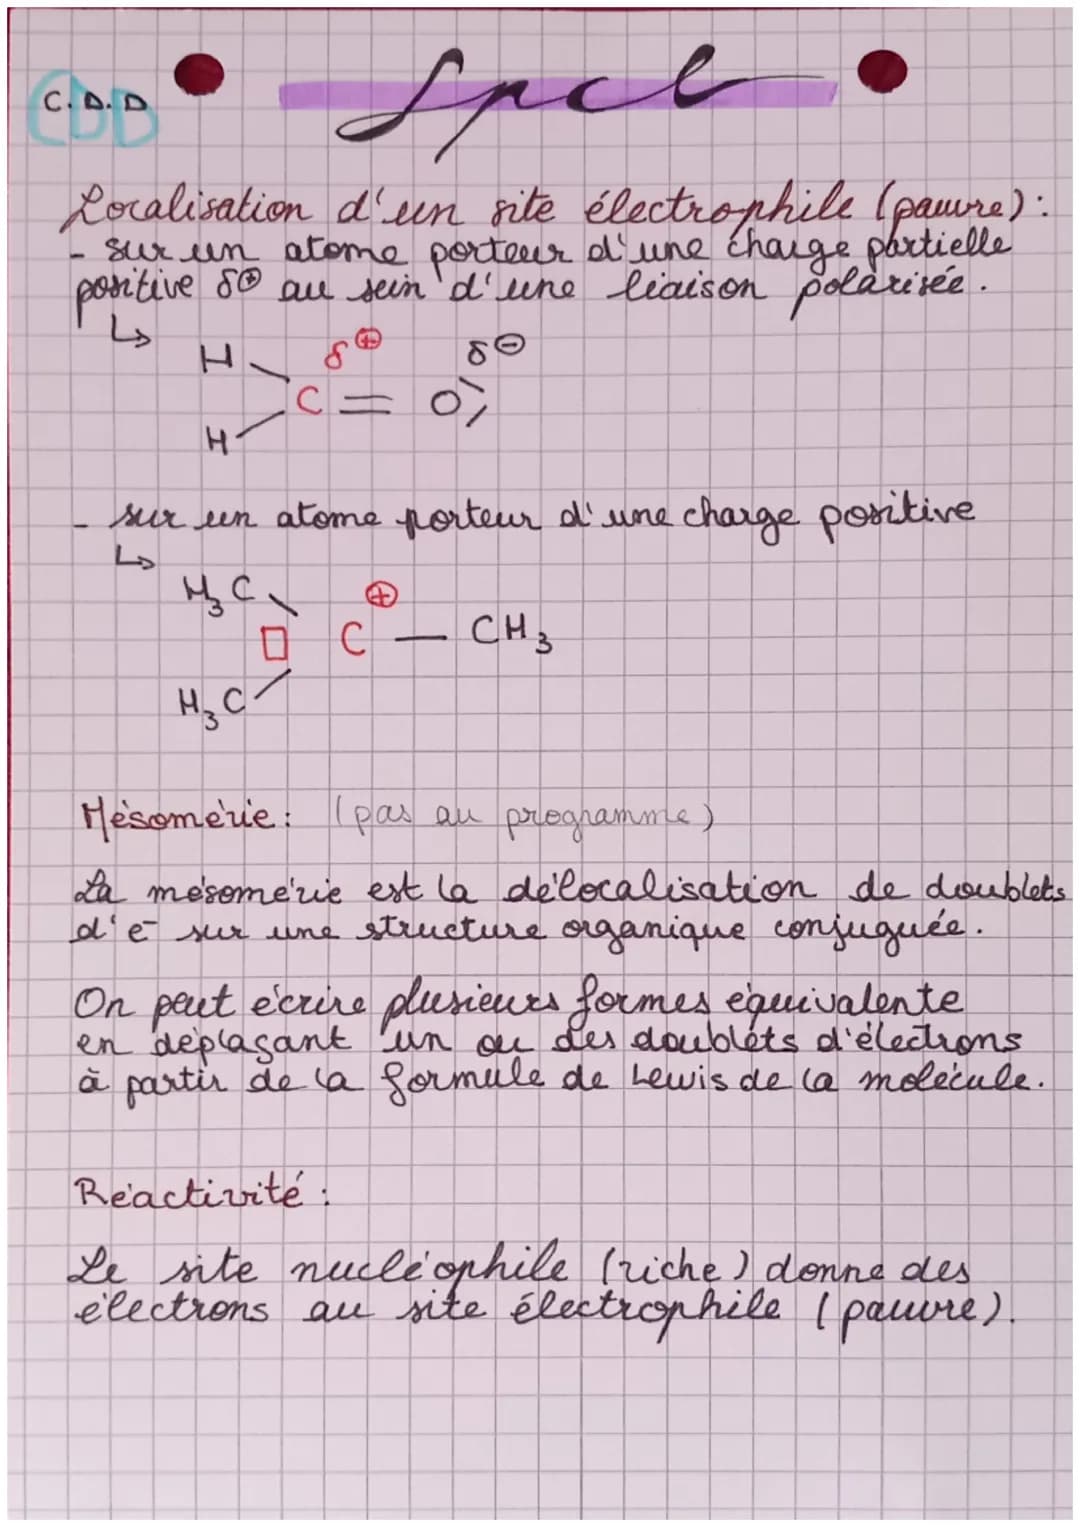 C.D.D
CDD
Spcl
Localisation d'un site électrophile (pauvre) :
- sur un atome porteur d'une charge partielle
positive δ⊕ au sein d'une liaison polarisée.
↳
H δ⊕ δ⊖
C = O
H
- sur un atome porteur d'une charge positive
↳
H₃C ⊕
□ C — CH₃
H₃C
Mésomérie : (pas au programme)
La mésomérie est la délocalisation de doublets
d'e⁻ sur une structure organique conjuguée.
On peut écrire plusieurs formes équivalente
en déplaçant un ou des doublets d'électrons
à partir de la formule de Lewis de la molécule.
Réactivité :
Le site nucléophile (riche) donne des
électrons au site électrophile (pauvre).